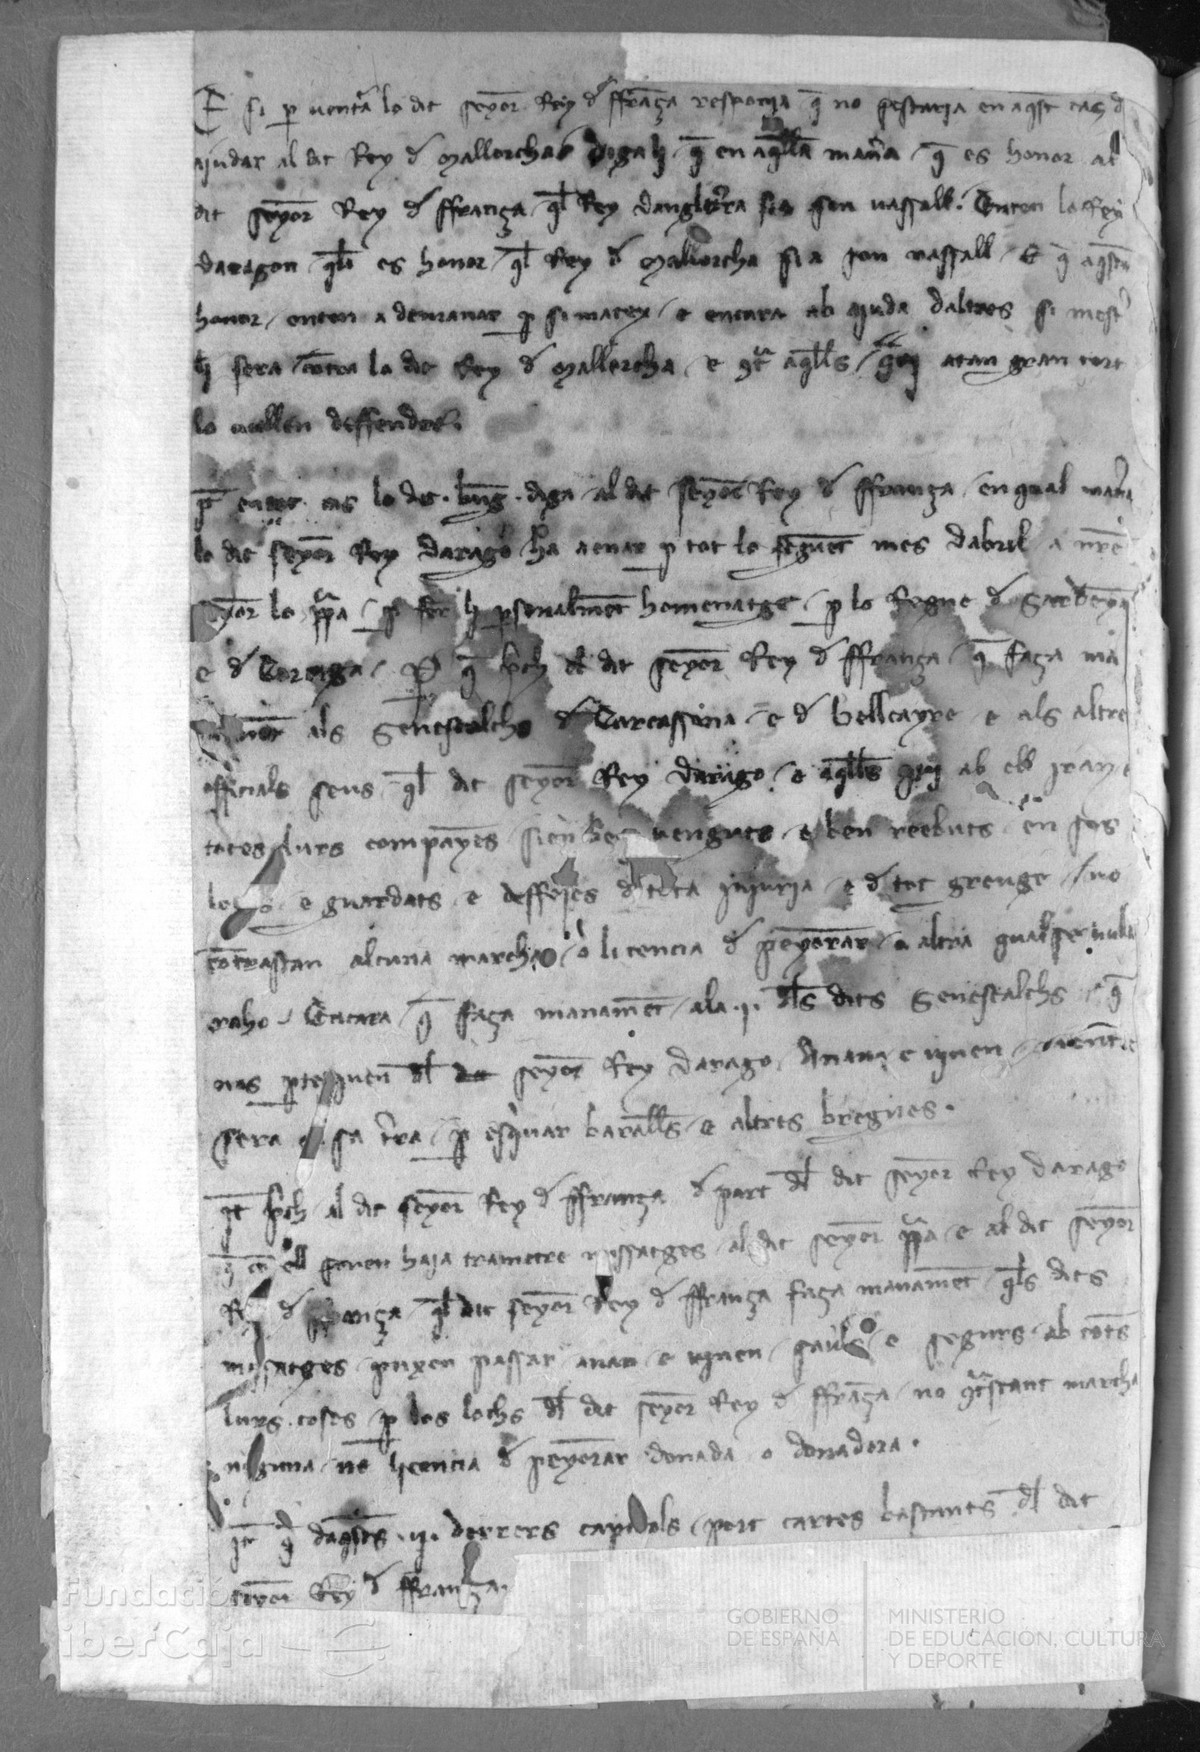 E si p ventᵃ lo dit seyor Rey d ffrāça responia q̄ no sestaria en aqst cas d
ajudar al dit Rey d Mallorcha digali q̄ en aqlla manᵃ q̄ es honor al
dit seyor Rey d ffrança ql Rey danglᵗrra sia son vassall. Enten lo Rey
daragon qli es honor ql Rey d Mallorcha sia son vassall E q̄ aqsta
honor enten a demanar p si mateix e encara ab ajuda daltres si mest
li sera contra lo dit Rey d Mallorcha e ctᵃ aqlls qui a tan gran tort
lo vullen deffendre.
en tot cas lo dit . bng . diga al dit seyor Rey d ffrança en qual manᵃ
lo dit seyor Rey darago ha anar p tot lo seguēt mes dabril a nre
seyor lo ppa p fer li psonalmēt homenatge p lo Regne d Sardenya
e d Corcega P q̄ pch al dit seyor Rey d ffrança q̄ faça ma
als Senescalchs d Carcassona e d Bellcayre e als altres
officials seus ql dit seyor Rey darago e aqlls qui ab ell iran e
totes lurs companyes sien ben venguts e ben reebuts en sos
e guardats e deffeses d tota injuria e d tot greuge no
contrastan alcuna marcha o licencia d peyorar o altra qualsevulla
raho. Encara q̄ faça manamēt ala .j. dls dits Senescalchs q̄
mes ptequen dl dit seyor Rey darago Anan e vinen mentre
sera en sa trra p esquivar baralls e altres bregues.
Jt pch al dit seyor Rey d ffrança d part dl dit seyor Rey darago
q̄ com ell soven haja trametre missatges al dit seyor ppa e al dit seyor
Rey d ffrança ql dit seyor Rey d ffrança faça manamēt qls dits
missatges puxen passar anan e vinen sauls e segurs ab totes
lurs coses p los lochs dl dit seyor Rey d ffrāça no ctᵃstant marcha
neguna ne licencia d peyorar donada o donadora.
Jt q̄ daqsts .ij. derrers capidols port cartes bastants dl dit
seyor Rey d ffrança.
Fundación
iberCaja
GOBIERNO
DE ESPAÑA
MINISTERIO
DE EDUCACIÓN, CULTURA
Y DEPORTE